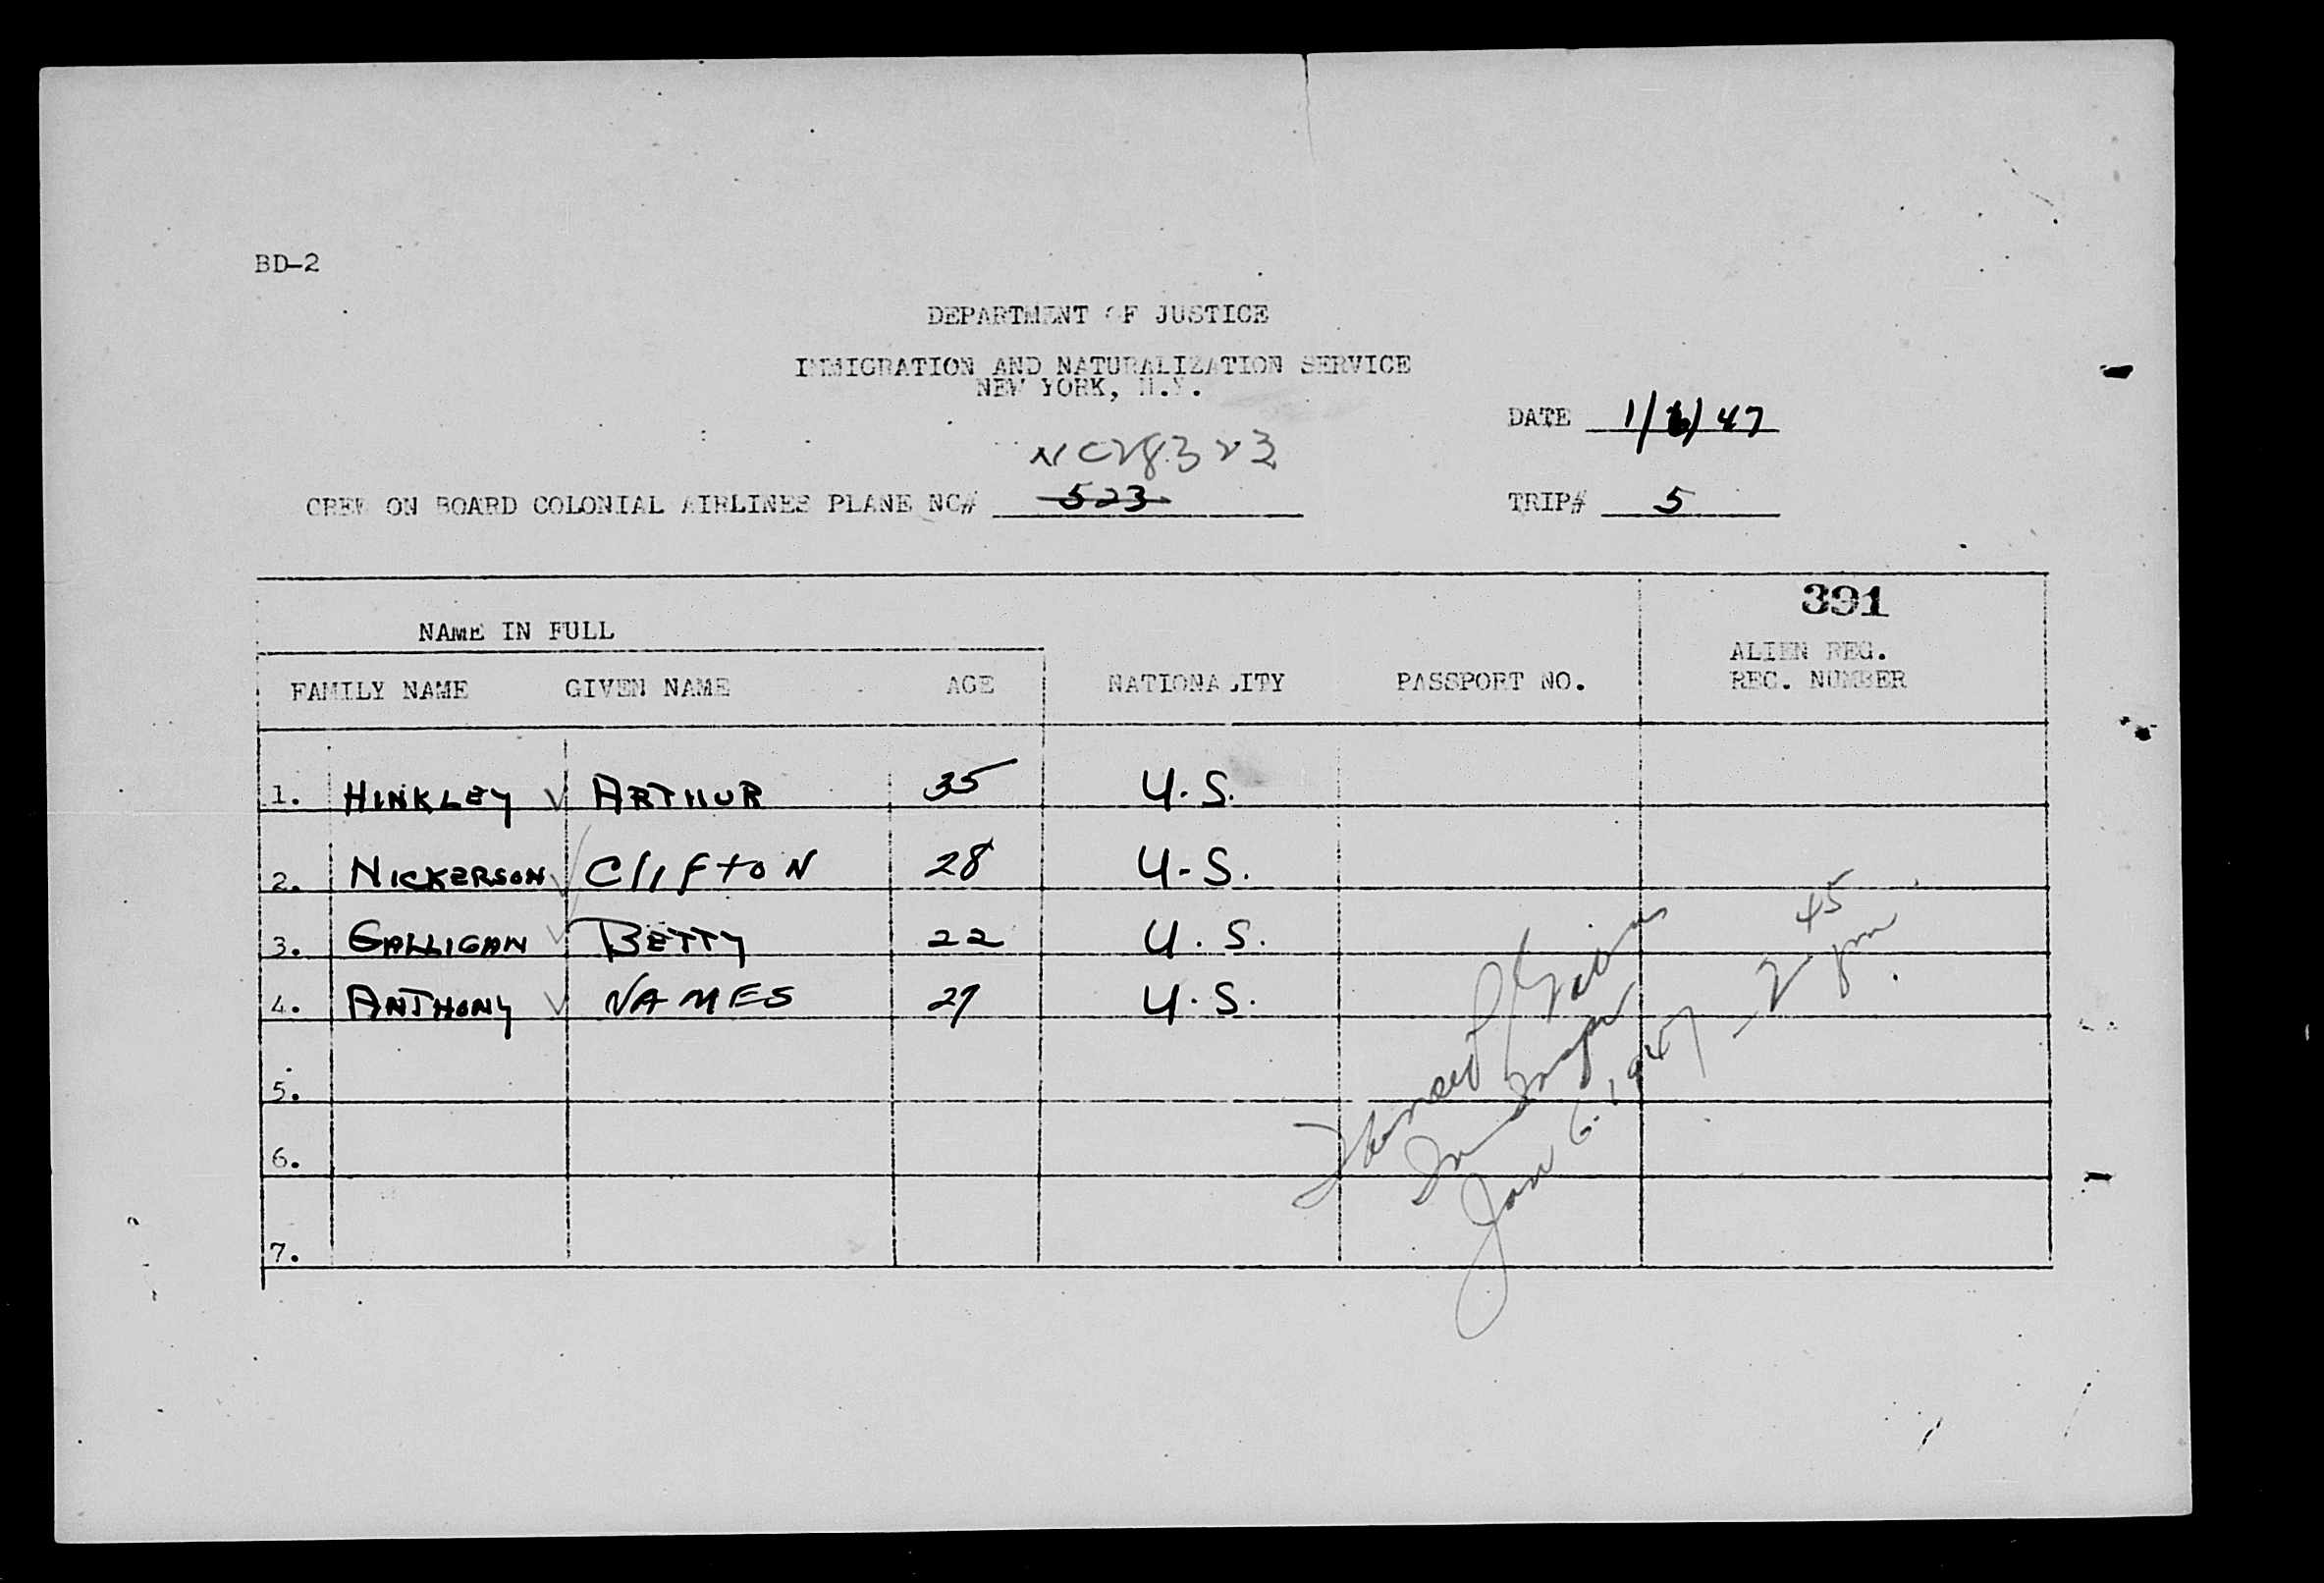 BD-2
DEPARTMENT OF JUSTICE
IMMIGRATION AND NATURALIZATION SERVICE
NEW YORK, N.Y.
DATE 1/6/47
NC28323
CREW ON BOARD COLONIAL AIRLINES PLANE NC# 523
TRIP# 5
391
NAME IN FULL
ALIEN REG.
FAMILY NAME GIVEN NAME AGE NATIONALITY PASSPORT NO. REC. NUMBER
1. HINKLEY ARTHUR 35 U.S.
2. NICKERSON CLIFTON 28 U.S.
3. GALLIGAN BETTY 22 U.S.
4. ANTHONY NAMES 29 U.S.
5.
6.
7.
Jan 6. 1947 - 2 45 pm